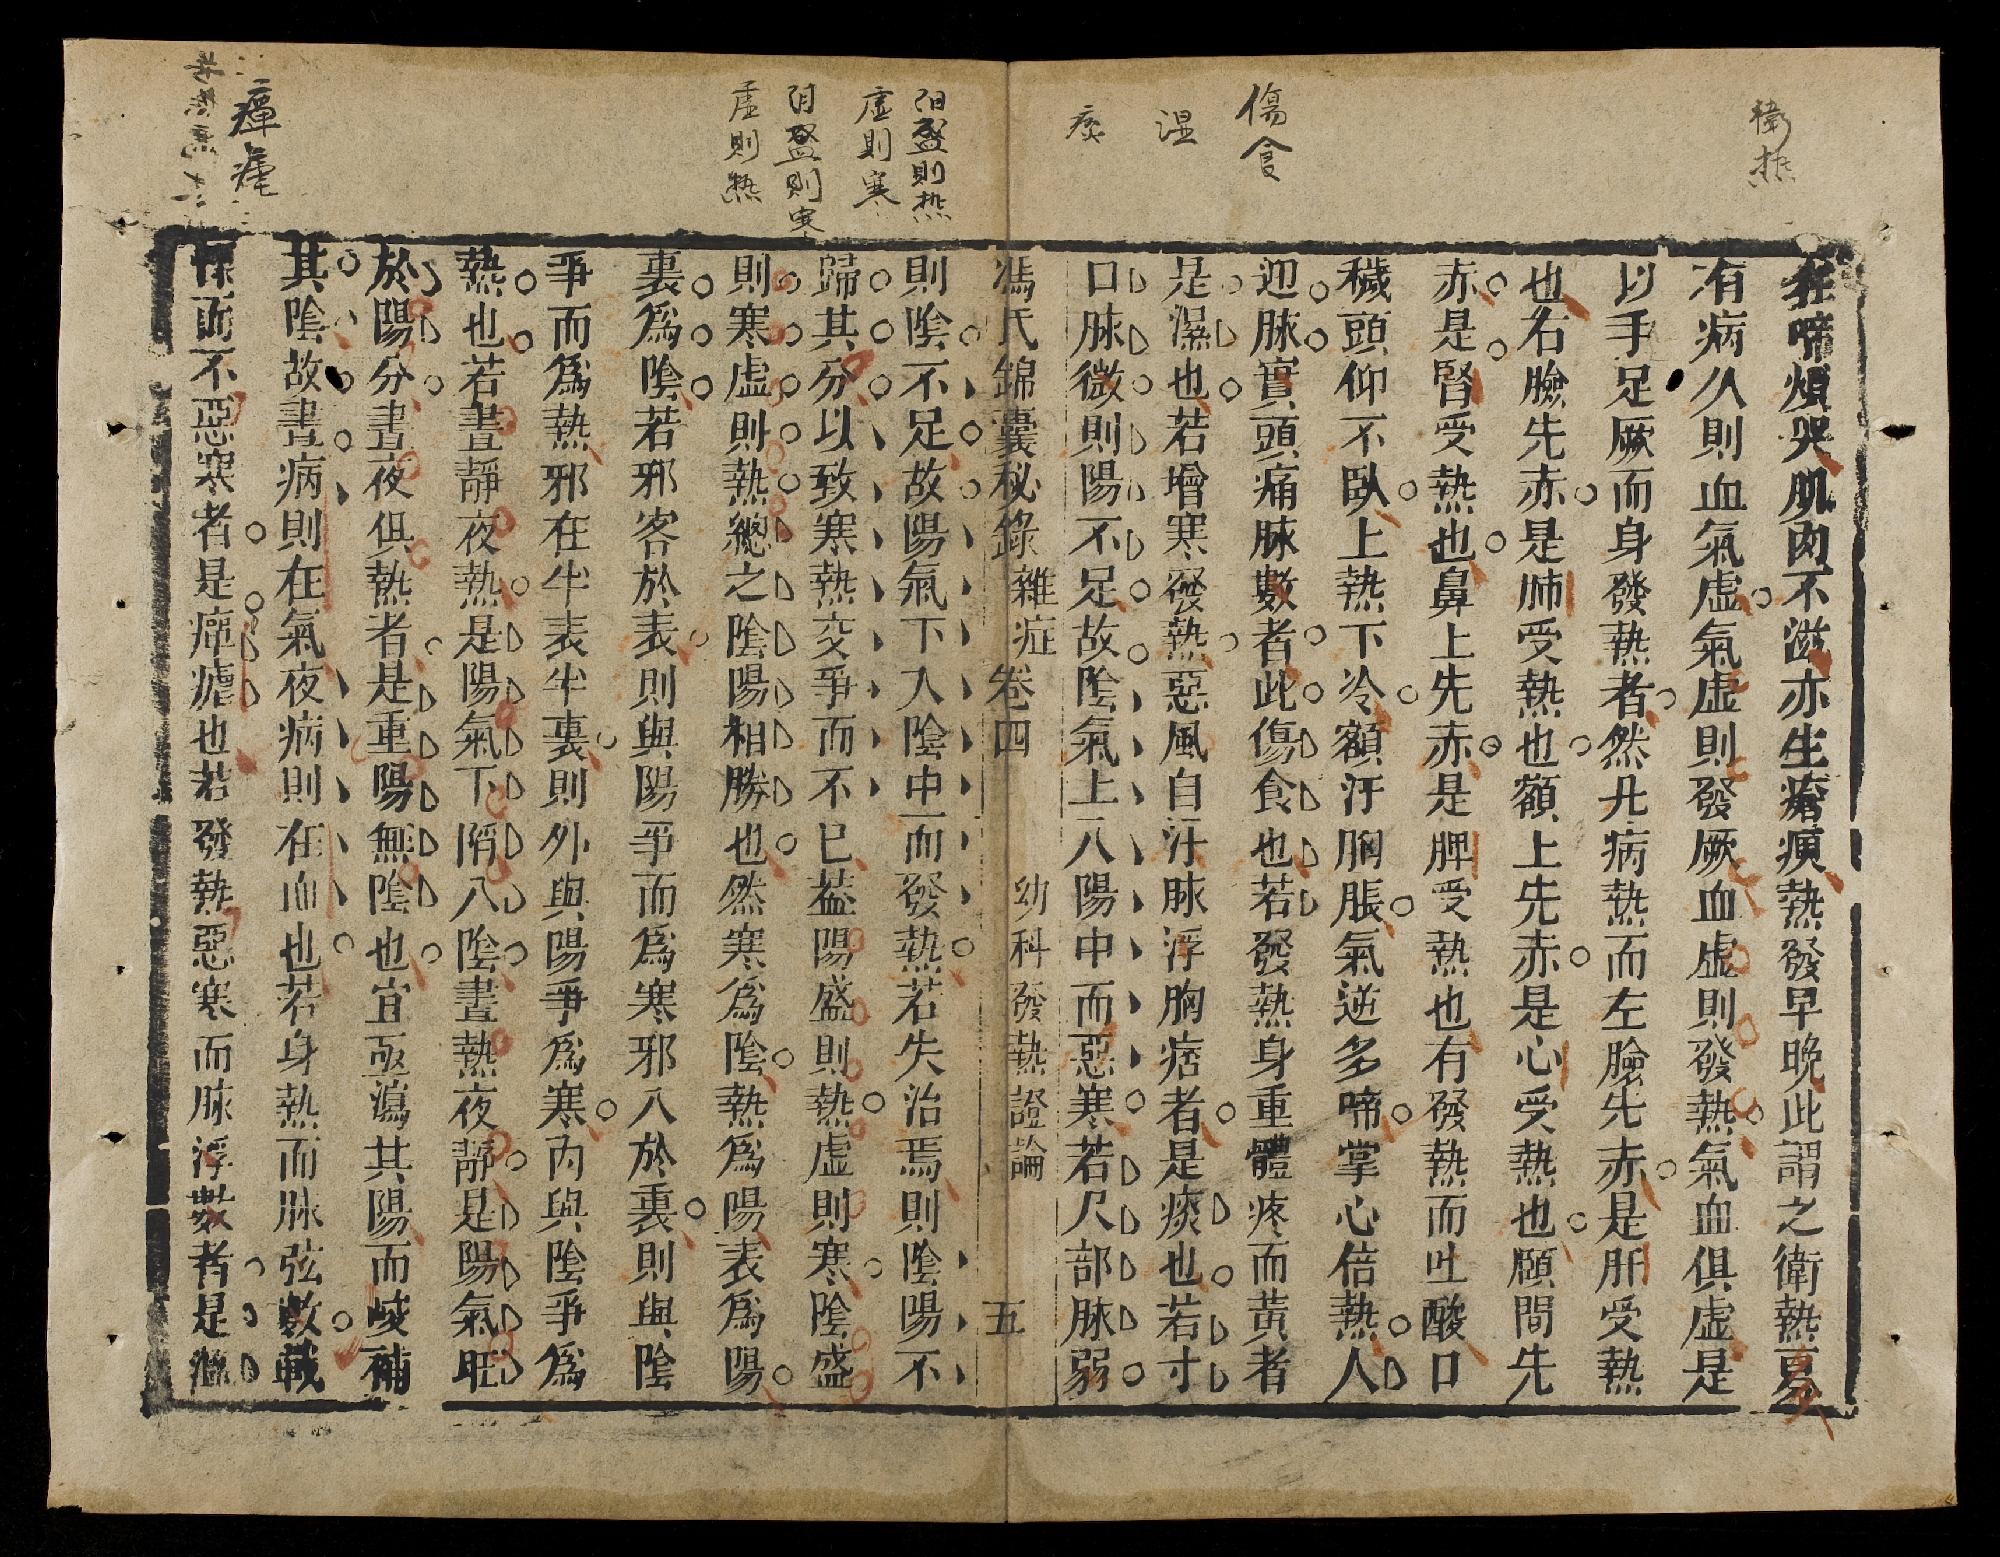 衛热
傷食
湿
痰
狂啼煩哭肌肉不滋亦生瘡㾮熱發早晚此謂之衛熱更
有病久則血氣虛氣虛則發厥血虛則發熱氣血俱虛是
以手足厥而身發熱者然凡病熱而左臉先赤是肝受熱
也右臉先赤是肺受熱也額上先赤是心受熱也頤間先
赤是腎受熱也鼻上先赤是脾受熱也有發熱而吐酸口
穢頭仰不臥上熱下冷額汗胸脹氣逆多啼掌心倍熱人
迎脉實頭痛脉數者此傷食也若發熱身重體疼而黃者
是濕也若增寒發熱惡風自汗脉浮胸痞者是痰也若寸
口脉微則陽不足故陰氣上入陽中而惡寒若尺部脉弱
馮氏錦囊秘錄 雜症 卷四 幼科發熱證論 五
阳盛則热
虛則寒
阴盛則寒
虛則熱
瘅瘧
則陰不足故陽氣下入陰中而發熱若失治焉則陰陽不
歸其分以致寒熱交爭而不已蓋陽盛則熱虛則寒陰盛
則寒虛則熱總之陰陽相勝也然寒爲陰熱爲陽表爲陽
裏爲陰若邪客於表則與陽爭而爲寒邪入於裏則與陰
爭而爲熱邪在半表半裏則外與陽爭爲寒內與陰爭爲
熱也若晝靜夜熱是陽氣下陷入陰晝熱夜靜是陽氣旺
於陽分晝夜俱熱者是重陽無陰也宜亟瀉其陽而峻補
其陰故晝病則在氣夜病則在血也若身熱而脉弦數戰
慄而不惡寒者是瘅瘧也若發熱惡寒而脉浮數者是溫